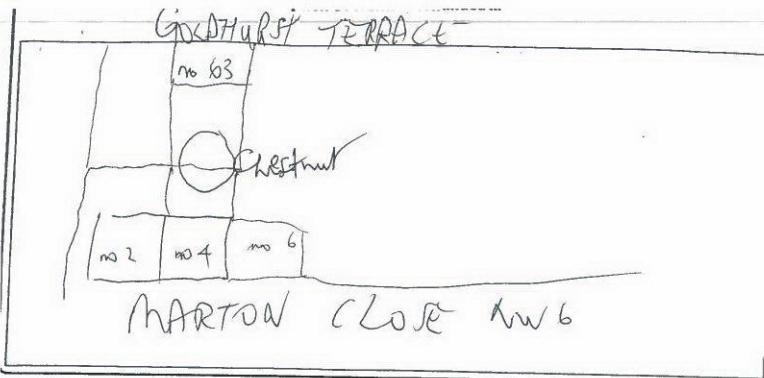 GOLDHURST TERRACE
no 63
Chestnut
no 2 no 4 no 6
MARTON CLOSE NW6